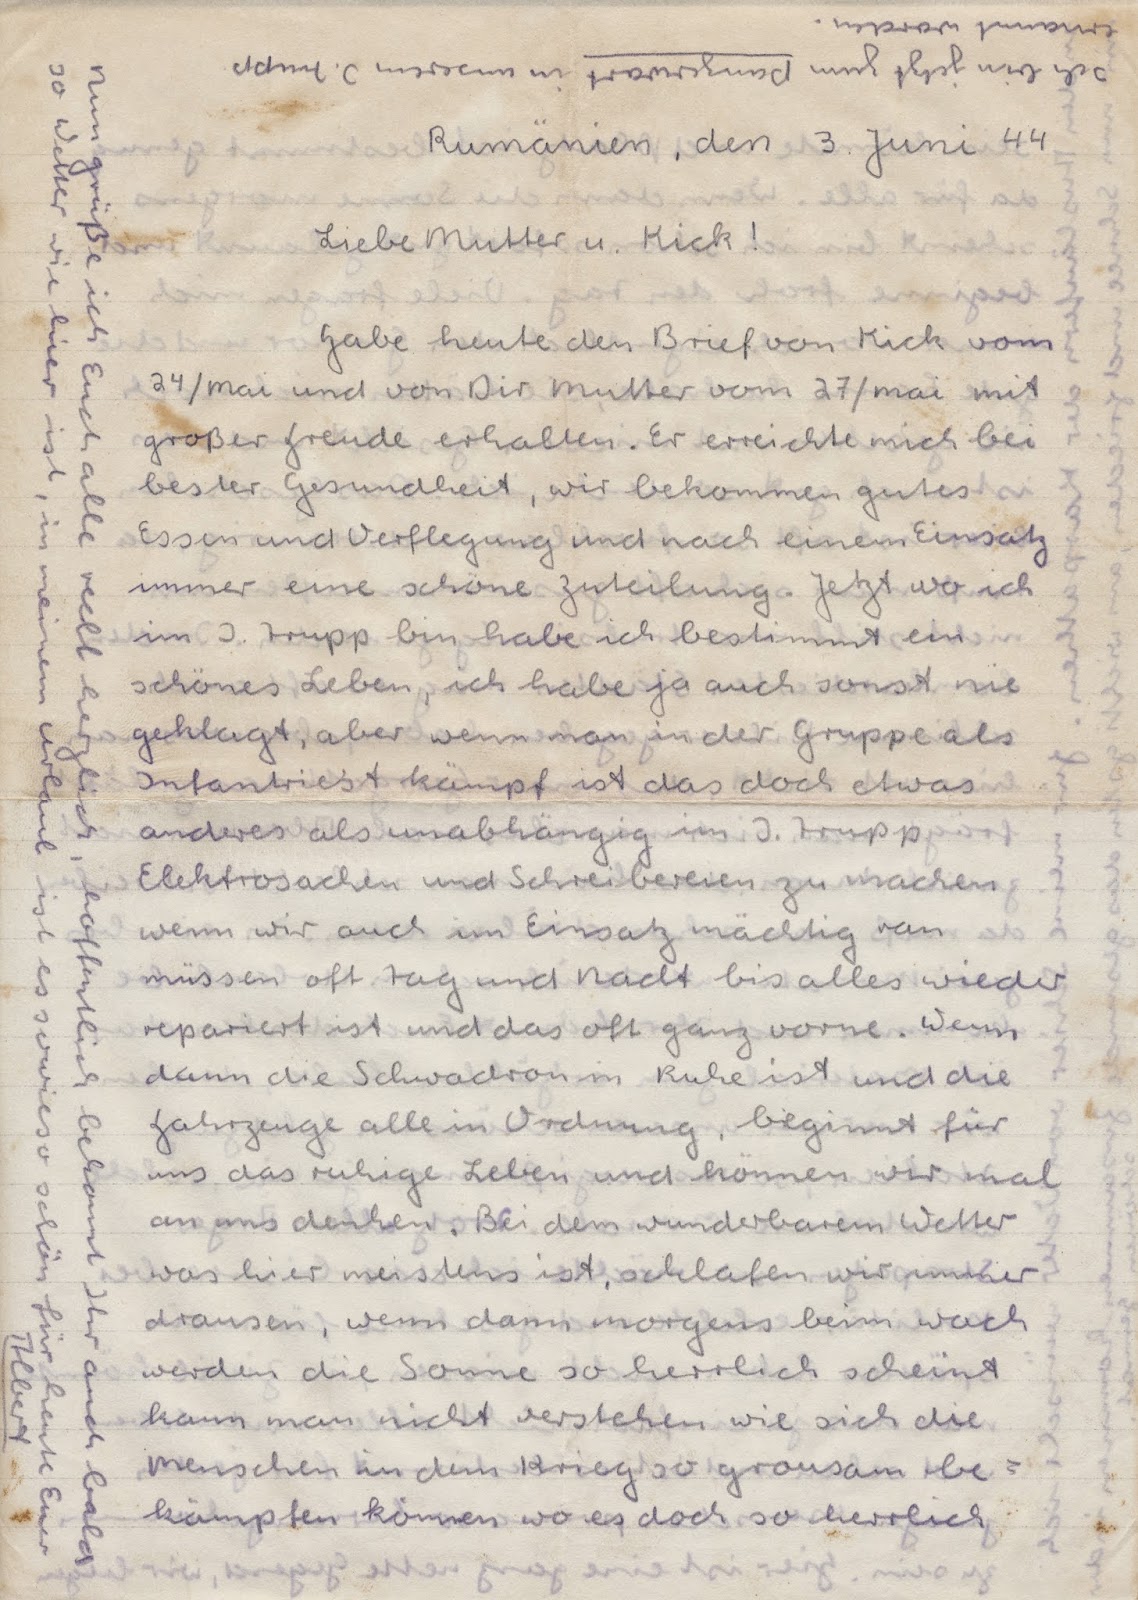 Ich bin jetzt zum Panzerwart in unserem J. Trupp
ernannt worden.
Rumänien, den 3. Juni 44
Liebe Mutter u. Kick!
Habe heute den Brief von Kick vom
24/Mai und von Dir Mutter vom 27/Mai mit
großer Freude erhalten. Er erreichte mich bei
bester Gesundheit, wir bekommen gutes
Essen und Verflegung und nach einem Einsatz
immer eine schöne Zuteilung. Jetzt wo ich
im J. Trupp bin habe ich bestimmt ein
schönes Leben, ich habe ja auch sonst nie
geklagt, aber wenn man in der Gruppe als
Infantriest kämpf ist das doch etwas
anderes als unabhängig im J. Trupp
Elektrosachen und Schreibereien zu machen
wenn wir auch im Einsatz mächtig ran
müssen oft Tag und Nacht bis alles wieder
repariert ist und das oft ganz vorne. Wenn
dann die Schwadron in Ruhe ist und die
Fahrzeuge alle in Ordnung, beginnt für
uns das ruhige Leben und können wir mal
an uns denken. Bei dem wunderbarem Wetter
was hier meistens ist, schlafen wir immer
drausen, wenn dann morgens beim wach
werden die Sonne so herrlich scheint
kann man nicht verstehen wie sich die
Menschen in dem Krieg so grausam be=
kämpfen können wo es doch so herrlich
Nun grüße ich Euch alle recht herzlich, hoffentlich bekommt Ihr auch bald
so Wetter wie hier ist, in meinem Urlaub ist es sowieso schön für heute Euer
Albert